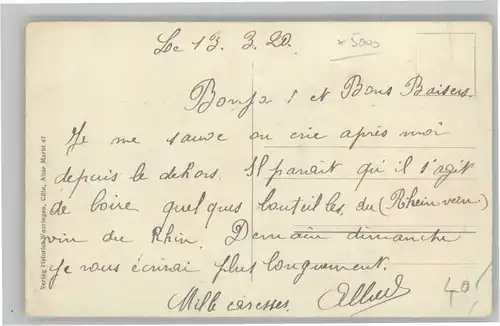 Le 13. 3. 20.
+5000
Bonjo ! et Bons Baisers.
Je me sauve on crie après moi
depuis le dehors. Il parait qu'il s'agit
de boire quelques bouteilles du (Rhein wein)
vin du Rhin. Demain dimanche
je vous écrirai plus longuement.
Mille caresses. Albert
40
Verlag Heinrich Cöln, Alter Markt 47